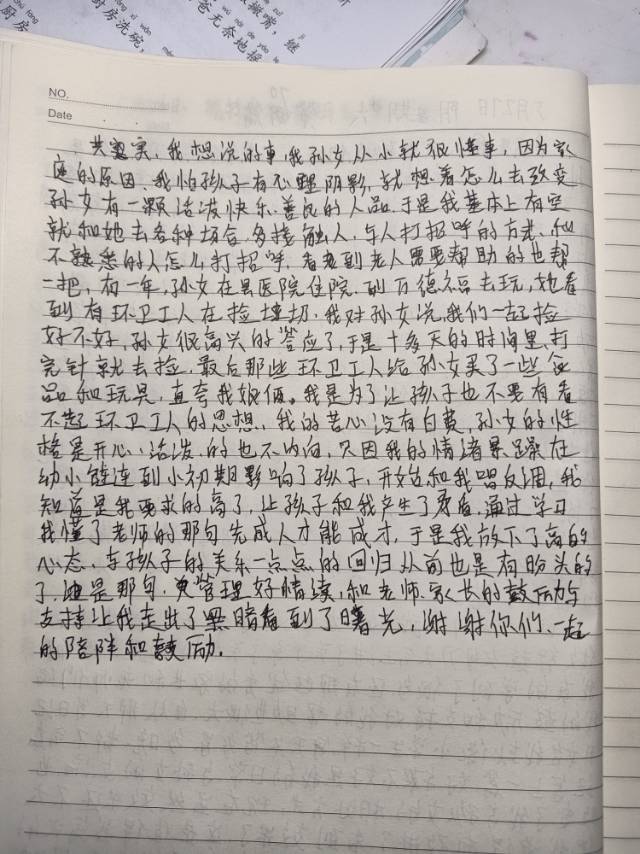 厨房洗碗,
爸无奈地接
NO.
Date
其实,我想说的事,我孙女从小就很懂事,因为家
庭的原因、我怕孩子有心理阴影,就想着怎么去改变
孙女有一颗活泼快乐.善良的人品.于是我基本上有空
就和她去各种场合,多接触人,与人打招呼的方式、和
不熟悉的人怎么打招呼,看到老人需要帮助的也帮
一把,有一年,孙女在县医院住院.到万德去玩,她看
到有环卫工人在捡垃圾.我对孙女说,我们一起捡
好不好,孙女很高兴的答应了,于是十多天的时间里,打
完针就去捡,最后那些环卫工人给孙女买了一些食
品和玩具,直夸我娘俩。我是为了让孩子也不要有看
不起环卫工人的思想、我的苦心没有白费,孙女的性
格是开心、活泼,的也不内向,只因我的情绪暴躁在
幼小链连到小初期影响了孩子,开始和我唱反调,我
知道是我要求的高了,让孩子和我产生了矛盾,通过学习
我懂了老师的那句先成人才能成才,于是我放下了高的
心态,与孩子的关系一点点的回归从前也是有盼头的
了,还是那句,管理好情绪,和老师、家长的鼓励与
支持让我走出了黑暗看到了曙光,谢谢你们、一起
的陪伴和鼓励.